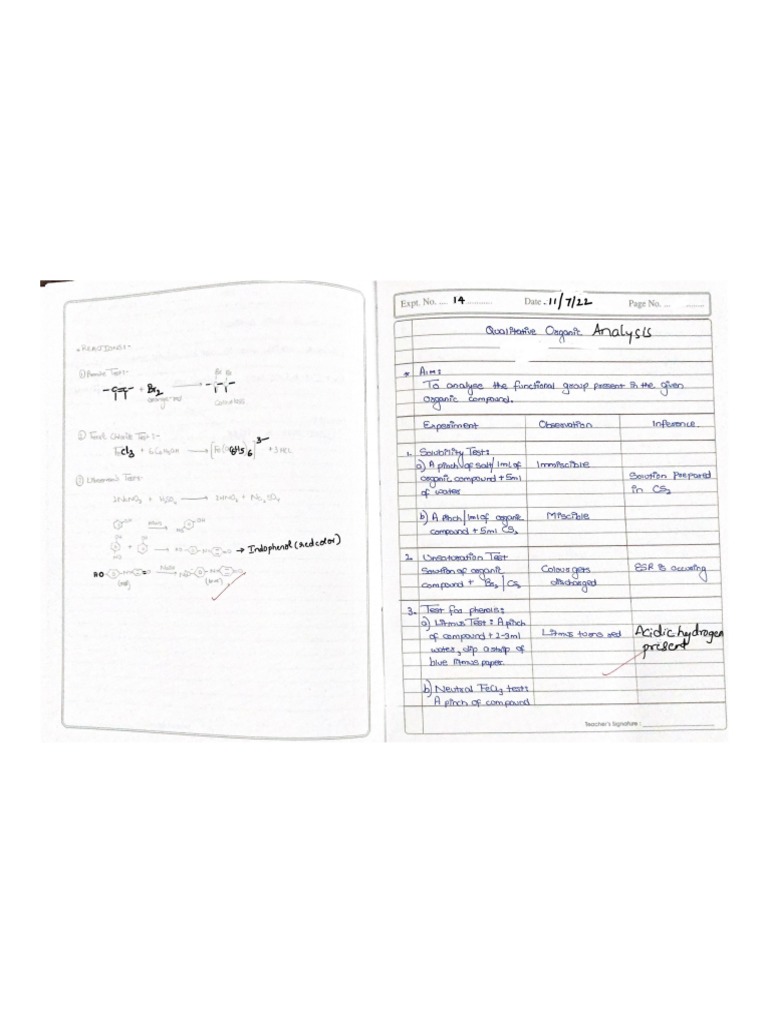 • REACTIONS:-
① Bromine Test:-
-C=C- + Br2 → -C-C-
Br Br
orange-red
Colourless
② Ferric Chloride Test:-
FeCl3 + 6C6H5OH → [Fe(OC6H5)6]3- + 3HCl
③ Liebermann Test:-
2NaNO2 + H2SO4 → 2HNO2 + Na2SO4
OH HNO2 → OH
NO
OH
+ → HO N O → Indophenol (red color)
HO N =O NaOH → NaO N O
(red) (blue)
Expt. No. ... 14 ........... Date .11/7/22 Page No. ... .......
Qualitative Organic Analysis
* Aim:
To analyse the functional group present in the given
organic compound.
Experiment Observation Inference
1. Solubility Test:
a) A pinch of salt/1ml of Immiscible
organic compound + 5ml Solution prepared
of water in CS2
b) A pinch/1ml of organic Miscible
compound + 5ml CS2
2. Unsaturation Test
Solution of organic Colour gets ESR is occuring
compound + Br2 | CS2 discharged
3. Test for phenols:
a) Litmus Test: A pinch Acidic hydrogen
of compound + 2-3ml Litmus turns red present
water, dip a strip of
blue litmus paper.
b) Neutral FeCl3 test:
A pinch of compound
Teacher's Signature : ____________